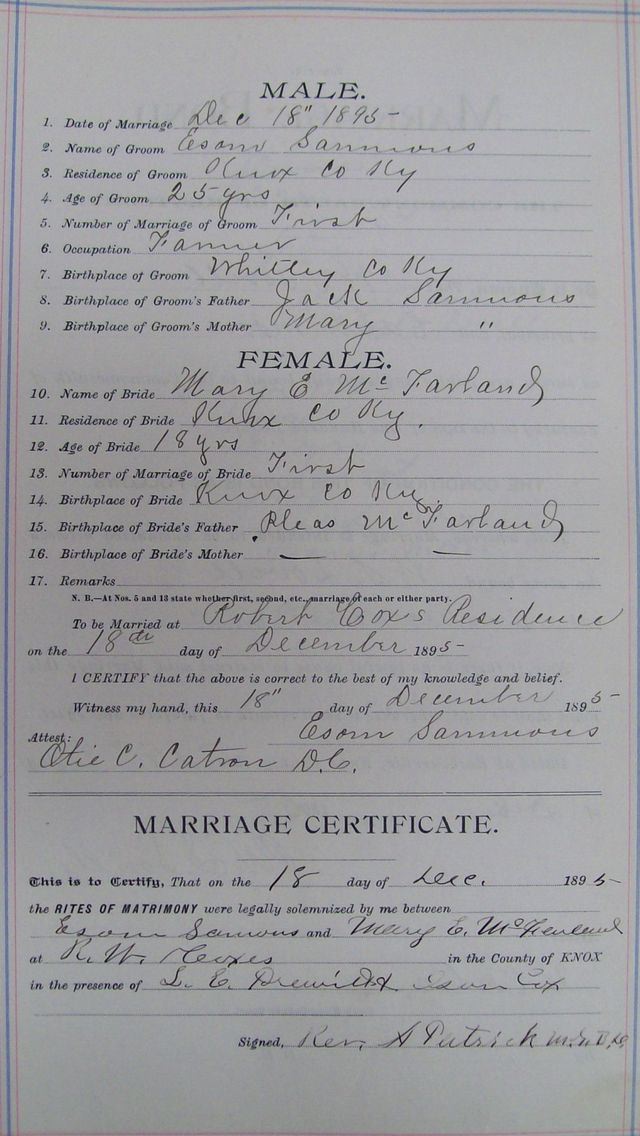 MALE.
1. Date of Marriage Dec 18" 1895-
2. Name of Groom Esom Sammons
3. Residence of Groom Knox Co Ky
4. Age of Groom 25 yrs
5. Number of Marriage of Groom First
6. Occupation Farmer
7. Birthplace of Groom Whitley Co Ky
8. Birthplace of Groom's Father Jack Sammons
9. Birthplace of Groom's Mother Mary "
FEMALE.
10. Name of Bride Mary E McFarland
11. Residence of Bride Knox Co Ky.
12. Age of Bride 18 yrs
13. Number of Marriage of Bride First
14. Birthplace of Bride Knox Co Ky
15. Birthplace of Bride's Father Pleas McFarland
16. Birthplace of Bride's Mother — —
17. Remarks
N. B.—At Nos. 5 and 13 state whether first, second, etc., marriage of each or either party.
To be Married at Robert Cox's Residence
on the 18th day of December 1895-
I CERTIFY that the above is correct to the best of my knowledge and belief.
Witness my hand, this 18" day of December 1895-
Esom Sammons
Attest:
Otie C. Catron D.C.
MARRIAGE CERTIFICATE.
This is to Certify, That on the 18 day of Dec. 1895-
the RITES OF MATRIMONY were legally solemnized by me between
Esom Samons and Mary E. McFarland
at R. W. Coxes in the County of KNOX
in the presence of L. E. Cox
Signed, Rev. A Patrick